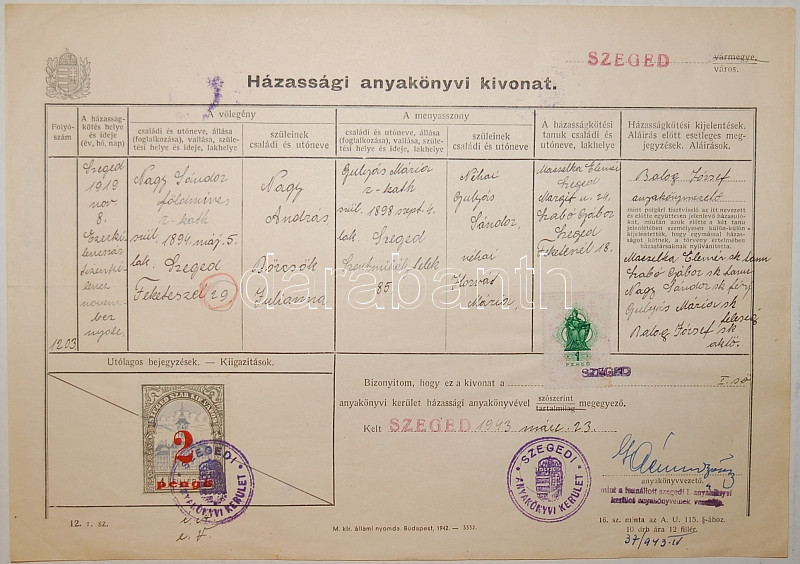 SZEGED
vármegye.
város.
Házassági anyakönyvi kivonat.
Folyó-
szám
A házasság-
kötés helye
és ideje
(év, hó, nap)
A vőlegény
családi és utóneve, állása
(foglalkozása), vallása, szüle-
tési helye és ideje, lakhelye
szüleinek
családi és utóneve
A menyasszony
családi és utóneve, állása
(foglalkozása), vallása, szüle-
tési helye és ideje, lakhelye
szüleinek
családi és utóneve
A házasságkötési
tanuk családi és
utóneve, lakhelye
Házasságkötési kijelentések.
Aláírás előtt esetleges meg-
jegyzések. Aláírások.
1203.
Szeged
1919
nov.
8.
Ezerki-
lencszáz
tizenki-
lenc
novem-
ber
nyolc
Nagy Sándor
földmives
r. kath
szül. 1894. máj. 5.
lak. Szeged
Feketeszél 29
Nagy
András
Börcsök
Julianna
Gulyás Mária
r. kath
szül. 1898 szept. 4.
lak. Szeged
Szentmihálytelek
85
Néhai
Gulyás
Sándor,
néhai
Horvát
Mária
Maszelka Elemér
Szeged
Margit u. 24.
Szabó Gábor
Szeged
18.
Balog József
anyakönyvvezető
mint polgári tisztviselő az itt nevezett
és előtte együttesen jelenlevő házasu-
lókat, miután azok előtte a két tanu
jelenlétében személyesen külön-külön
kijelentették, hogy egymással házas-
ságot kötnek, a törvény értelmében
házastársaknak nyilvánította.
Maszelka Elemér sk tanu
Szabó Gábor sk tanu
Nagy Sándor sk férj
Gulyás Mária sk
feleség
Balog József sk
akvő.
Utólagos bejegyzések. — Kiigazítások.
SZEGED SZAB. KIR. VÁROS
2
PENGŐ
SZEGEDI
ANYAKÖNYVI KERÜLET
1
PENGŐ
SZEGED
Bizonyítom, hogy ez a kivonat a I. ső
anyakönyvi kerület házassági anyakönyvével szószerint megegyező.
tartalmilag
Kelt SZEGED 1943 márc. 23.
SZEGEDI
ANYAKÖNYVI KERÜLET
anyakönyvvezető
mint a fennállott szegedi I. anyakönyvi
kerület anyakönyveinek vezetője
12. r. sz.
M. kir. állami nyomda. Budapest, 1942. — 3532.
16. sz. minta az A. U. 115. §-ához.
10 drb ára 12 fillér.
37/943-IV
darabanth